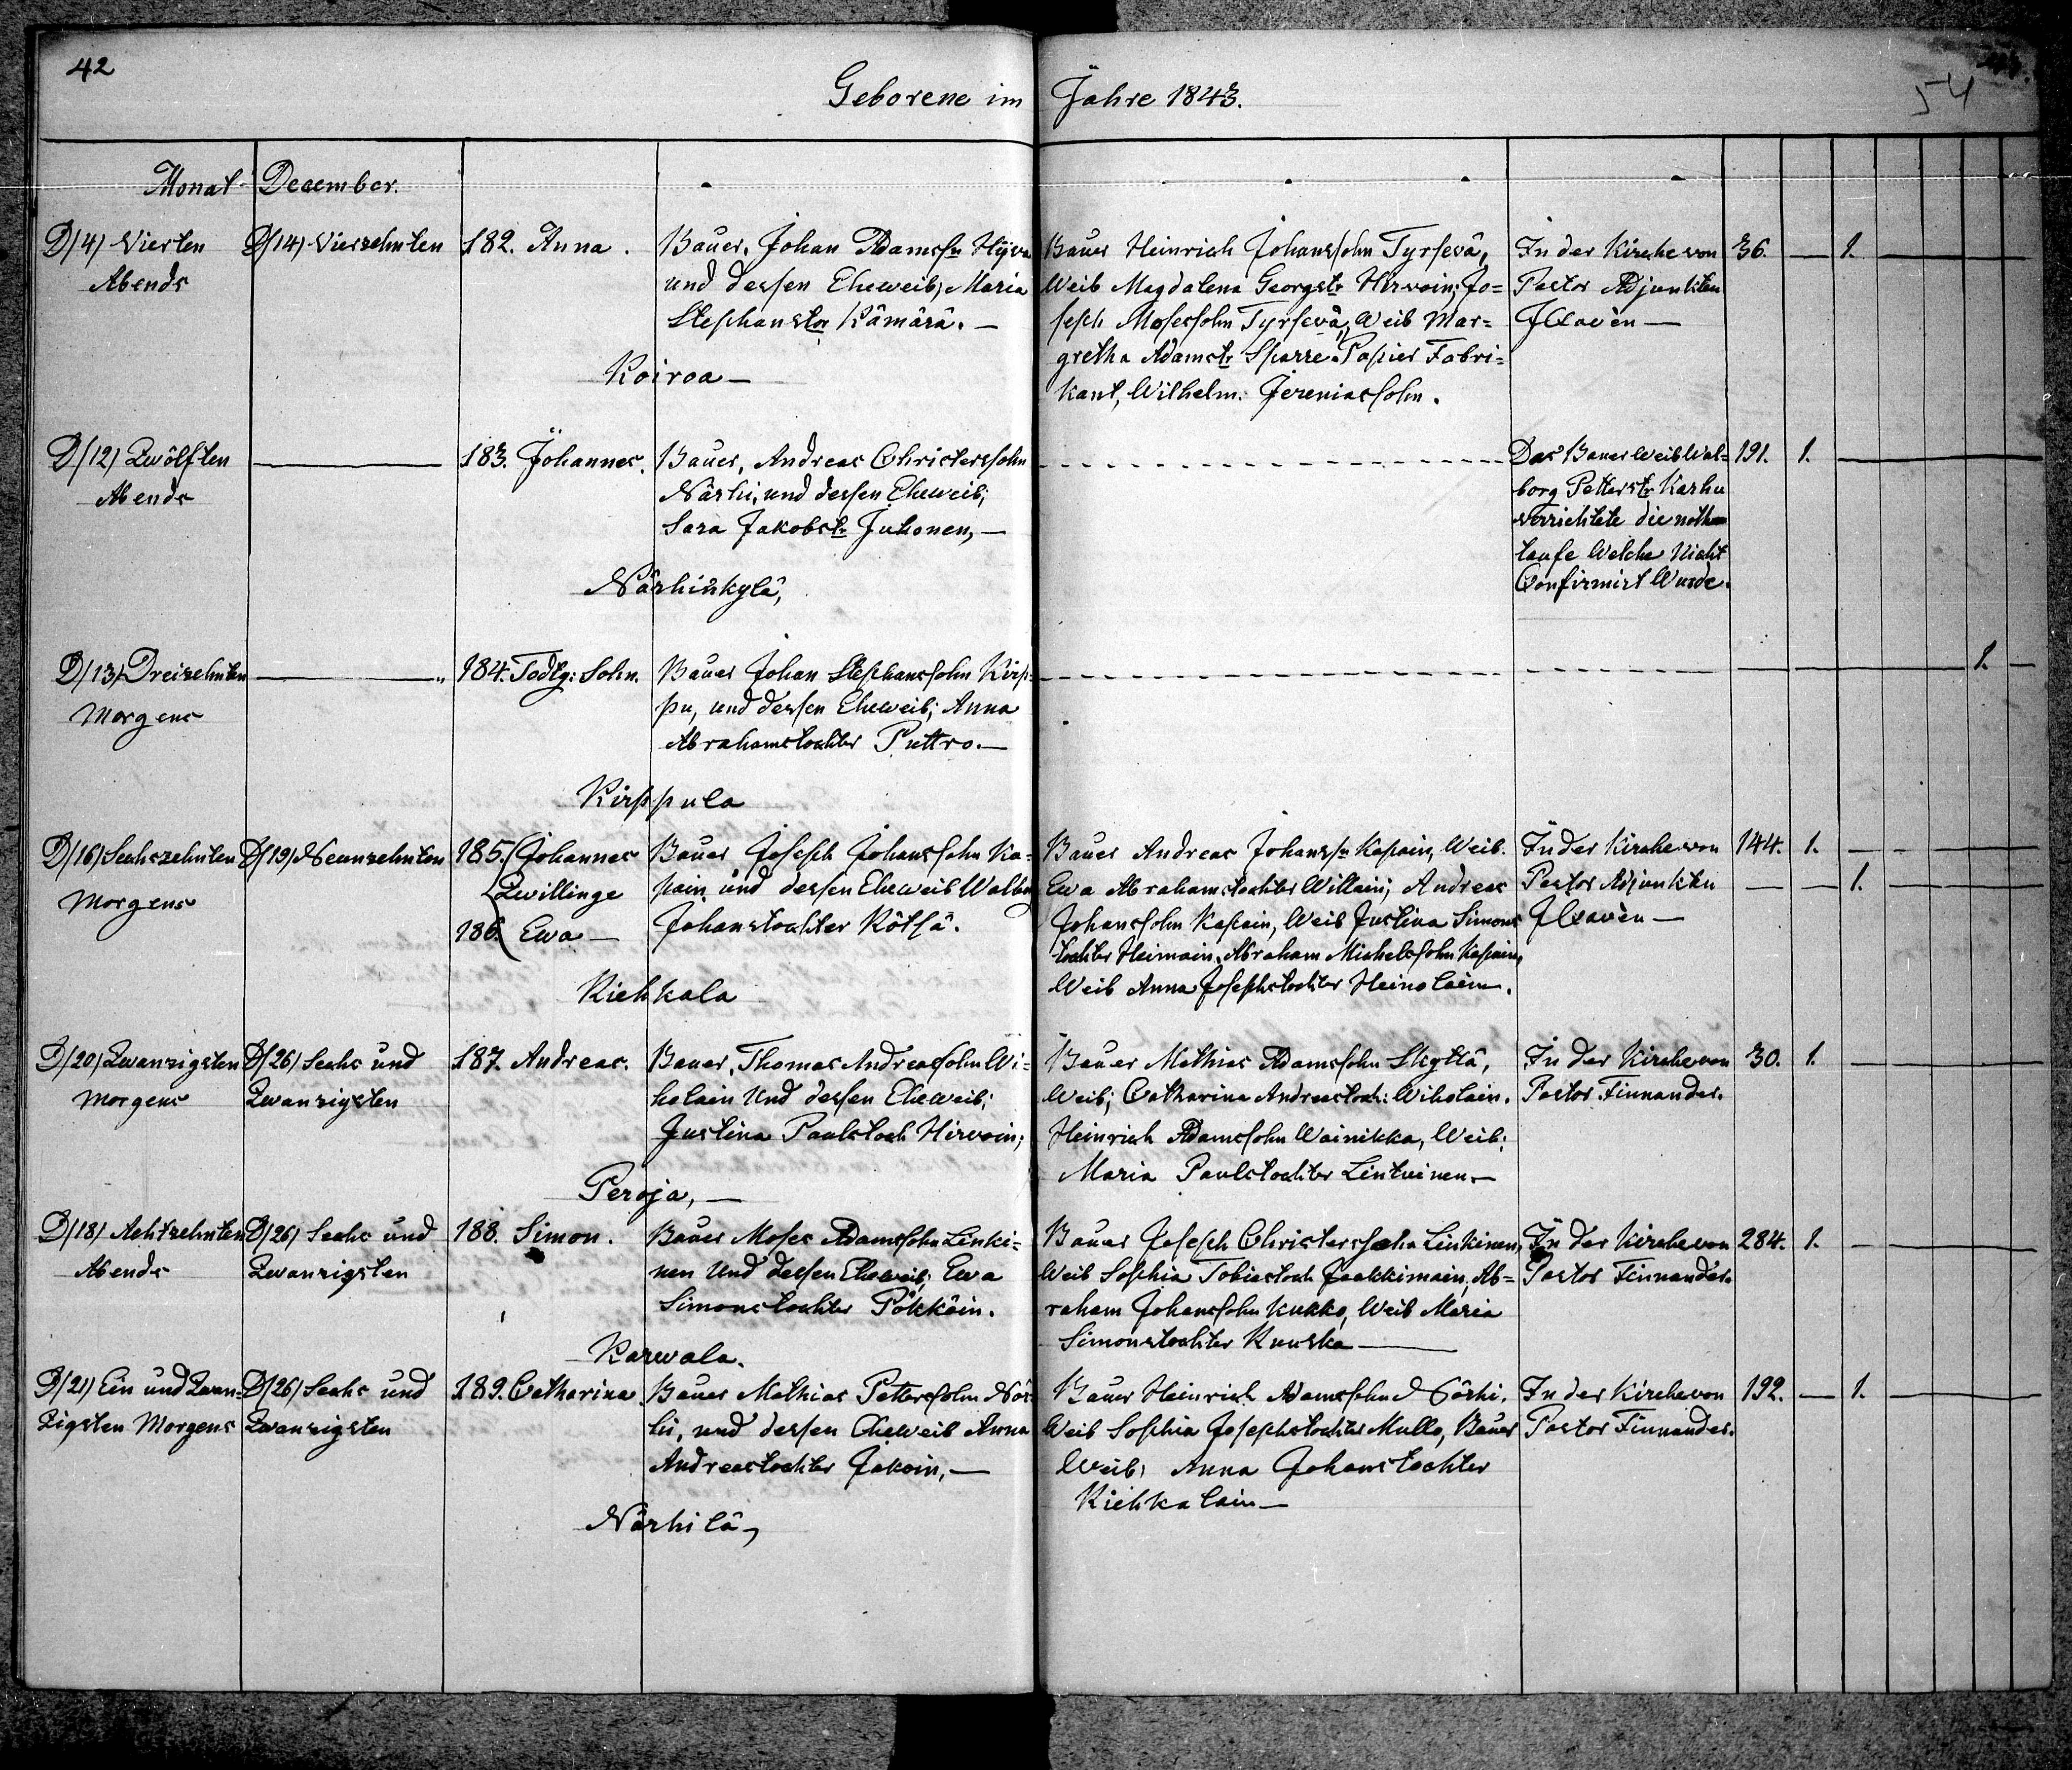 42
54
Geborene im Jahre 1843.
Monat December.
D/4) Vierten
Abends
D/14) Vierzehnten
182. Anna.
Bauer, Johan Adamssn Hÿvä
und dessen Eheweib; Maria
Stephanstor Kämärä. —
Koiroa —
Bauer Heinrich Johanssohn Tyrsevä,
Weib Magdalena Georgstr Hirvoin; Jo=
seph Mosessohn Tyrsevä, Weib Mar=
gretha Adamstr Sparre. Papier Fabri=
kant, Wilhelm. Jeremiassohn.
In der Kirche von
Pastor Adjunkten
36. — 1.
D/12) Zwölften
Abends
183. Johannes.
Bauer, Andreas Christerssohn
Närhi, und dessen Eheweib;
Sara Jakobstr Juhonen, —
Närhinkylä,
Das Bauer Weib Wal=
borg Petterstr Karhu
verrichtete die noth
taufe Welche Nicht
Confirmirt Wurde.
191. 1.
D/13) Dreizehnten
Morgens
184. Todtg: Sohn.
Bauer Johan Stephanssohn Kirp=
pu, und dessen Eheweib; Anna
Abrahamstochter Puttro. —
Kirppula
1.
D/16) Sechszehnten
Morgens
D/19) Neunzehnten
185. Johannes
Zwillinge
186. Ewa —
Bauer Joseph Johanssohn Ka=
pain und dessen Eheweib Walbg
Johanstochter Rötsä.
Kiehkala
Bauer Andreas Johanssn Kapain, Weib.
Ewa Abrahamstochter Willain; Andreas
Johanssohn Kapain, Weib Justina Simons
tochter Heimain. Abraham Michelssohn Kapain,
Weib Anna Josephstochter Heinolain.
In der Kirche von
Pastor Adjunkten
144. 1.
1.
D/20) Zwanzigsten
Morgens
D/26) Sechs und
Zwanzigsten
187. Andreas.
Bauer, Thomas Andreassohn Wi=
holain Und dessen Eheweib;
Justina Paulstoch Hirvoin;
Peroja, —
Bauer Mathias Adamssohn Skyttä,
Weib; Catharina Andreastoch: Wiholain.
Heinrich Adamssohn Wainikka, Weib;
Maria Paulstochter Lintuinen. —
In der Kirche von
Pastor Finnander.
30. 1.
D/18) Achtzehnten
Abends
D/26) Sechs und
Zwanzigsten
188. Simon.
Bauer Moses Adamssohn Linki=
nen Und dessen Eheweib; Ewa
Simonstochter Pökköin.
Karwala.
Bauer Joseph Christerssohn Linkinen,
Weib Sophia Tobiastoch Jaakkimain, Ab=
raham Johanssohn Kukko, Weib Maria
Simonstochter Kuuska —
In der Kirche von
Pastor Finnander.
284. 1.
D/21) Ein und Zwan=
zigsten Morgens
D/26) Sechs und
Zwanzigsten
189. Catharina.
Bauer Mathias Petterssohn När=
hi, und dessen Eheweib Anna
Andreastochter Jakoin, —
Närhilä,
Bauer Heinrich Adamssohn Närhi.
Weib Sophia Josephstochter Mullo, Bauer
Weib; Anna Johanstochter
Kiehkalain —
In der Kirche von
Pastor Finnander.
192. — 1.